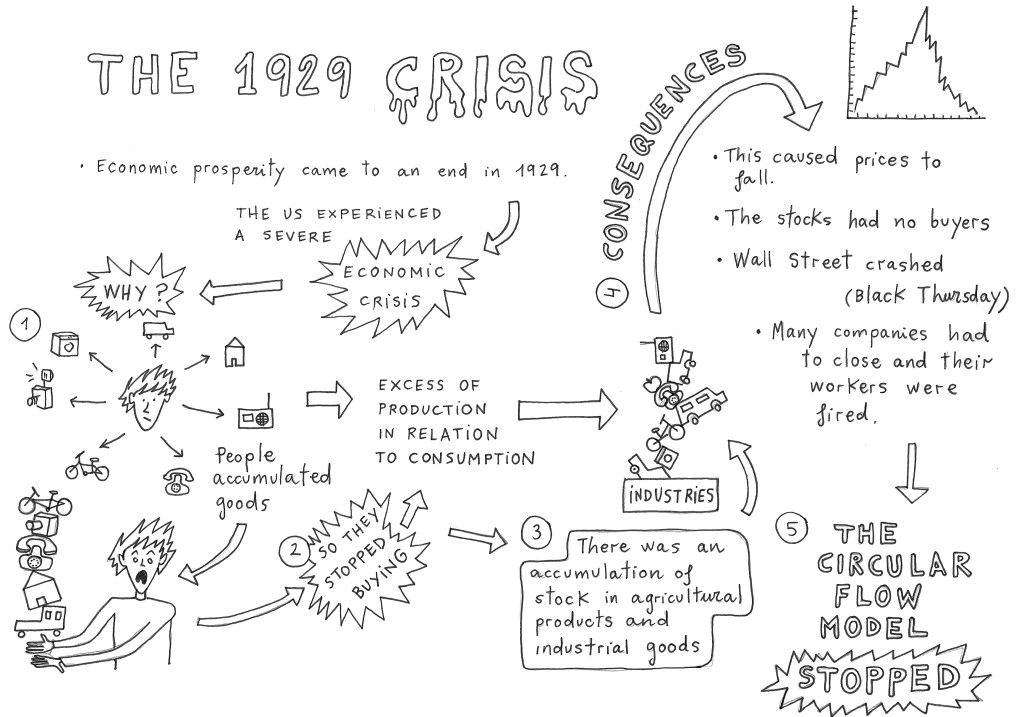 THE 1929 CRISIS
• Economic prosperity came to an end in 1929.
THE US EXPERIENCED
A SEVERE
ECONOMIC
CRISIS
WHY?
1
People
accumulated
goods
EXCESS OF
PRODUCTION
IN RELATION
TO CONSUMPTION
2
SO THEY
STOPPED
BUYING
3
There was an
accumulation of
stock in agricultural
products and
industrial goods
INDUSTRIES
4
CONSEQUENCES
• This caused prices to
fall.
• The stocks had no buyers
• Wall Street crashed
(Black Thursday)
• Many companies had
to close and their
workers were
fired.
5
THE
CIRCULAR
FLOW
MODEL
STOPPED